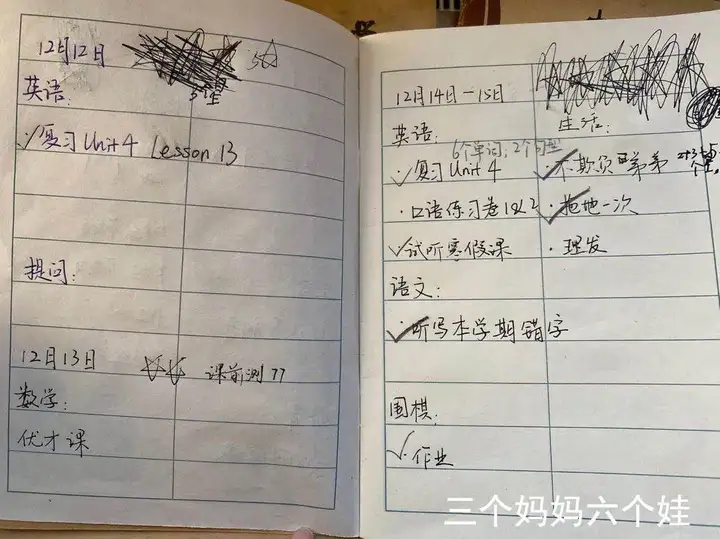 12月12日 5☆
5个星
英语:
✓复习Unit 4 Lesson 13
提问:
12月13日 ☆☆ 课前测77
数学:
优才课
12月14日-15日
英语:
6个单词,2个句型
✓复习Unit 4
·口语练习卷1&2
✓试听寒假课
语文:
✓听写本学期错字
围棋:
✓作业
生活:
✓不欺负 弟弟 2+3=5
个星
✓拖地一次
·理发
三个妈妈六个娃